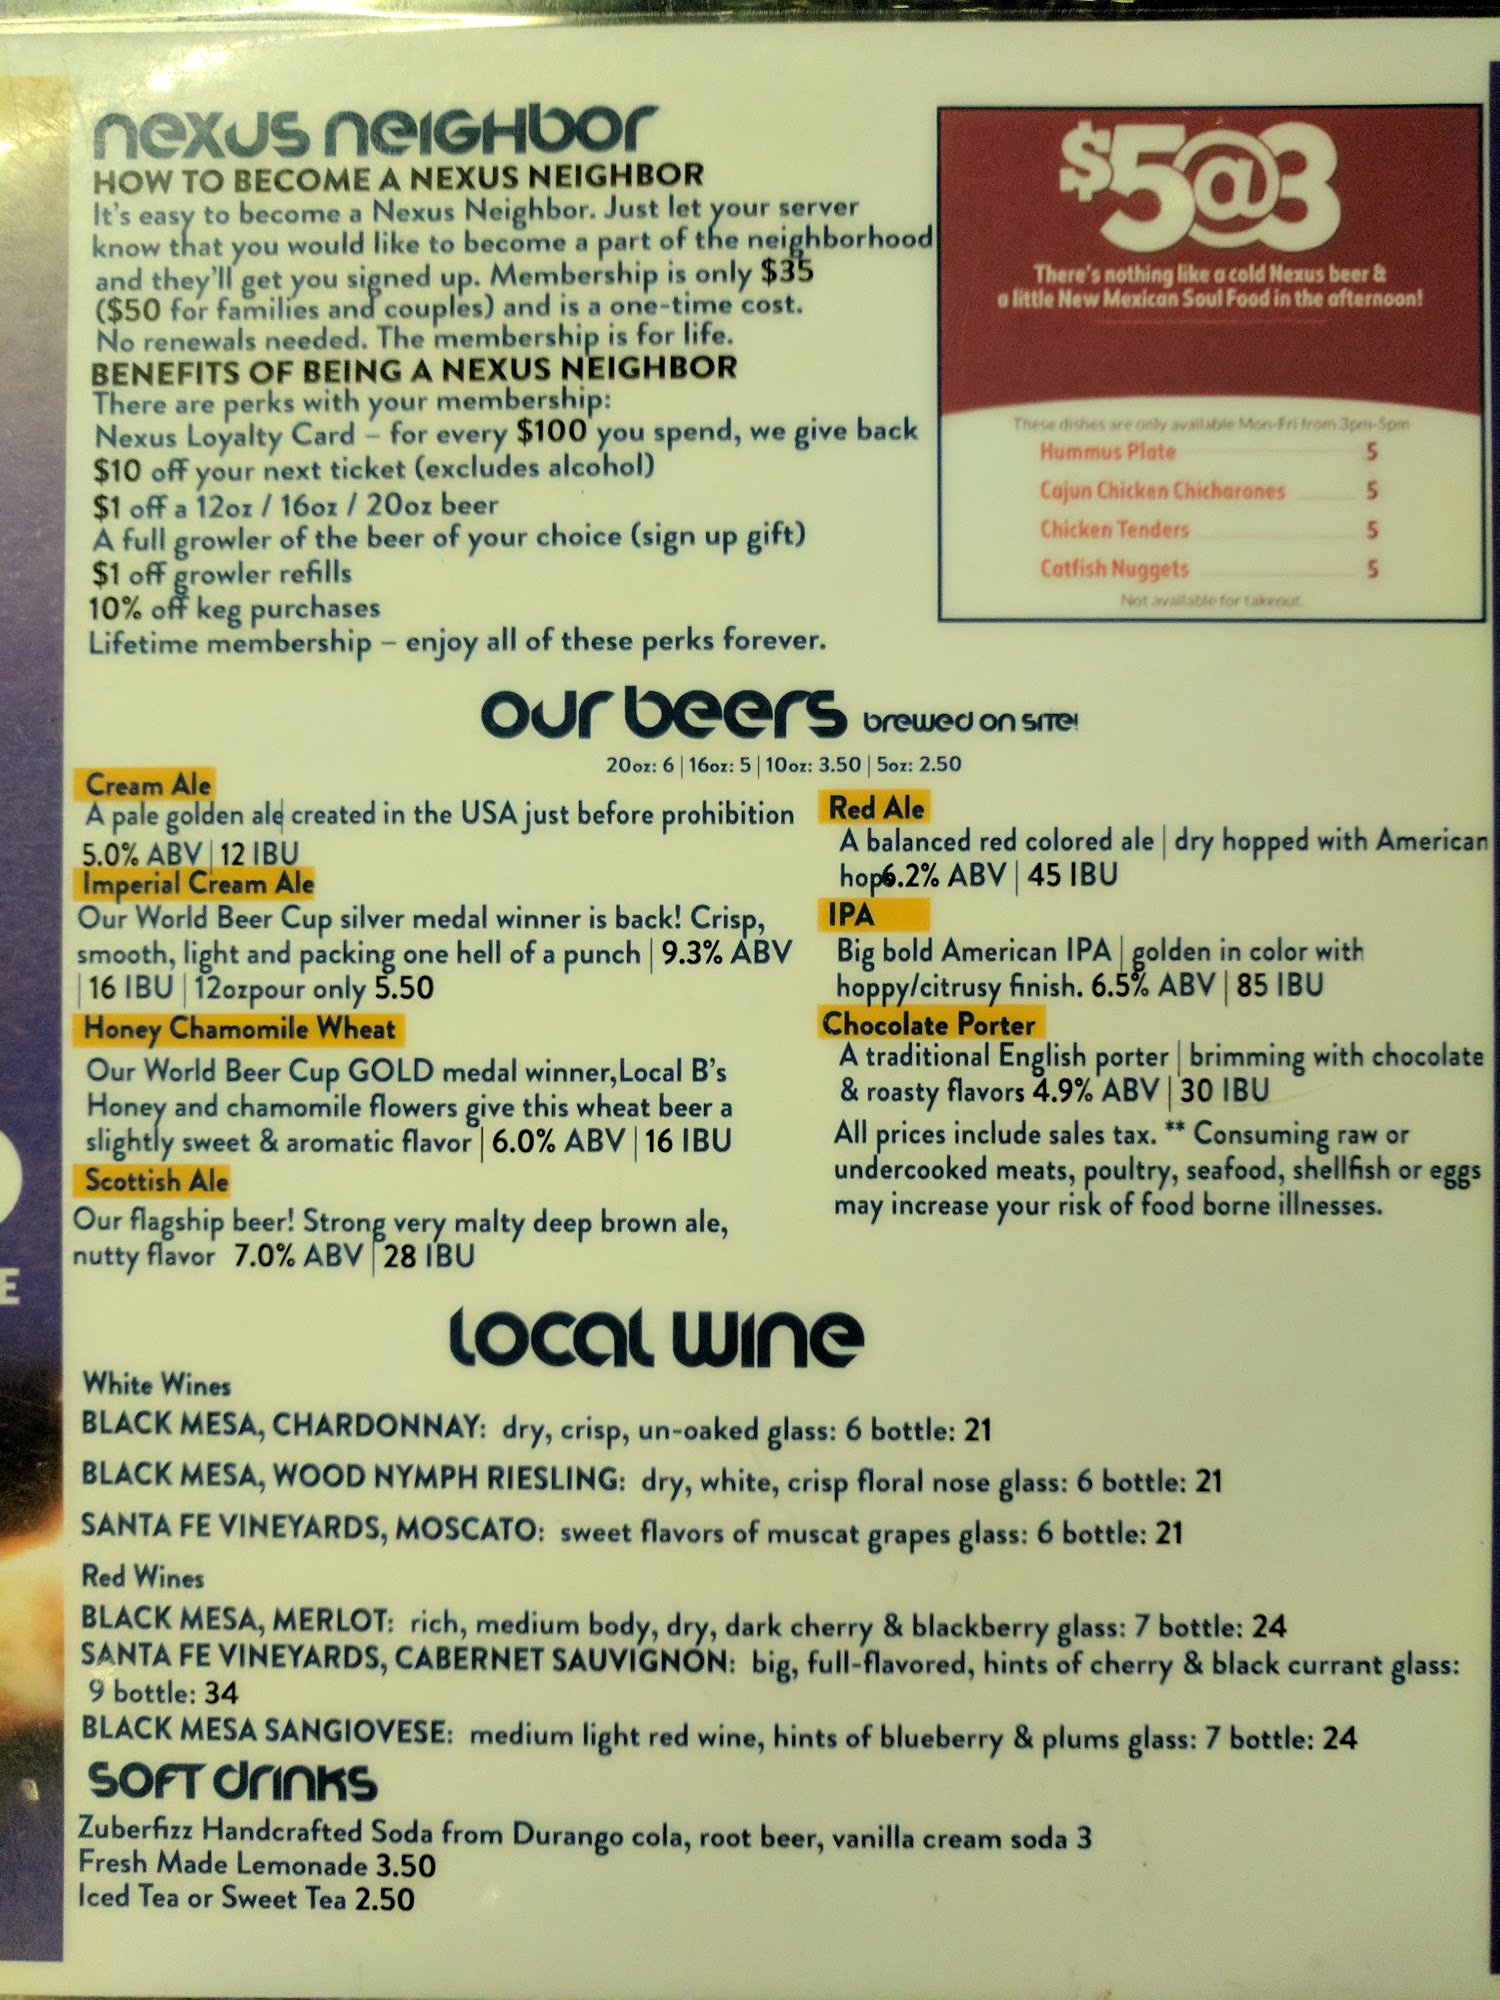 nexus neighbor
HOW TO BECOME A NEXUS NEIGHBOR
It's easy to become a Nexus Neighbor. Just let your server
know that you would like to become a part of the neighborhood
and they'll get you signed up. Membership is only $35
($50 for families and couples) and is a one-time cost.
No renewals needed. The membership is for life.
BENEFITS OF BEING A NEXUS NEIGHBOR
There are perks with your membership:
Nexus Loyalty Card – for every $100 you spend, we give back
$10 off your next ticket (excludes alcohol)
$1 off a 12oz / 16oz / 20oz beer
A full growler of the beer of your choice (sign up gift)
$1 off growler refills
10% off keg purchases
Lifetime membership – enjoy all of these perks forever.
$5@3
There's nothing like a cold Nexus beer &
a little New Mexican Soul Food in the afternoon!
These dishes are only available Mon-Fri from 3pm-5pm
Hummus Plate 5
Cajun Chicken Chicharones 5
Chicken Tenders 5
Catfish Nuggets 5
Not available for takeout.
our beers brewed on site!
20oz: 6 | 16oz: 5 | 10oz: 3.50 | 5oz: 2.50
Cream Ale
A pale golden ale| created in the USA just before prohibition
5.0% ABV | 12 IBU
Imperial Cream Ale
Our World Beer Cup silver medal winner is back! Crisp,
smooth, light and packing one hell of a punch | 9.3% ABV
| 16 IBU | 12ozpour only 5.50
Honey Chamomile Wheat
Our World Beer Cup GOLD medal winner,Local B's
Honey and chamomile flowers give this wheat beer a
slightly sweet & aromatic flavor | 6.0% ABV | 16 IBU
Scottish Ale
Our flagship beer! Strong very malty deep brown ale,
nutty flavor 7.0% ABV | 28 IBU
Red Ale
A balanced red colored ale | dry hopped with American
hops6.2% ABV | 45 IBU
IPA
Big bold American IPA | golden in color with
hoppy/citrusy finish. 6.5% ABV | 85 IBU
Chocolate Porter
A traditional English porter | brimming with chocolate
& roasty flavors 4.9% ABV | 30 IBU
All prices include sales tax. ** Consuming raw or
undercooked meats, poultry, seafood, shellfish or eggs
may increase your risk of food borne illnesses.
E
Local wine
White Wines
BLACK MESA, CHARDONNAY: dry, crisp, un-oaked glass: 6 bottle: 21
BLACK MESA, WOOD NYMPH RIESLING: dry, white, crisp floral nose glass: 6 bottle: 21
SANTA FE VINEYARDS, MOSCATO: sweet flavors of muscat grapes glass: 6 bottle: 21
Red Wines
BLACK MESA, MERLOT: rich, medium body, dry, dark cherry & blackberry glass: 7 bottle: 24
SANTA FE VINEYARDS, CABERNET SAUVIGNON: big, full-flavored, hints of cherry & black currant glass:
9 bottle: 34
BLACK MESA SANGIOVESE: medium light red wine, hints of blueberry & plums glass: 7 bottle: 24
soft drinks
Zuberfizz Handcrafted Soda from Durango cola, root beer, vanilla cream soda 3
Fresh Made Lemonade 3.50
Iced Tea or Sweet Tea 2.50